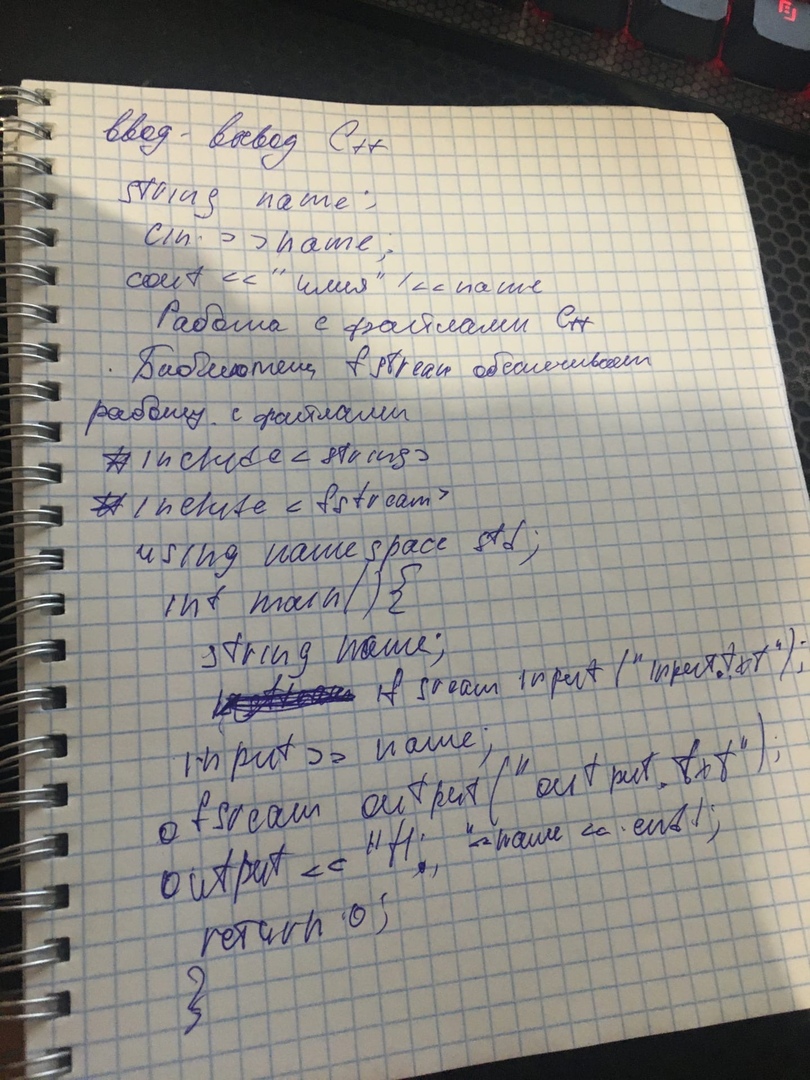 ввод - вывод C++
string name;
cin >> name;
cout << "имя" << name
Работа с файлами C++
Библиотека fstream обеспечивает
работу с файлами
#include <string>
#include <fstream>
using namespace std;
int main() {
string name;
ifstream input ("input.txt");
input >> name;
ofstream output ("output.txt");
output << "Hi, " << name << endl;
return 0;
}